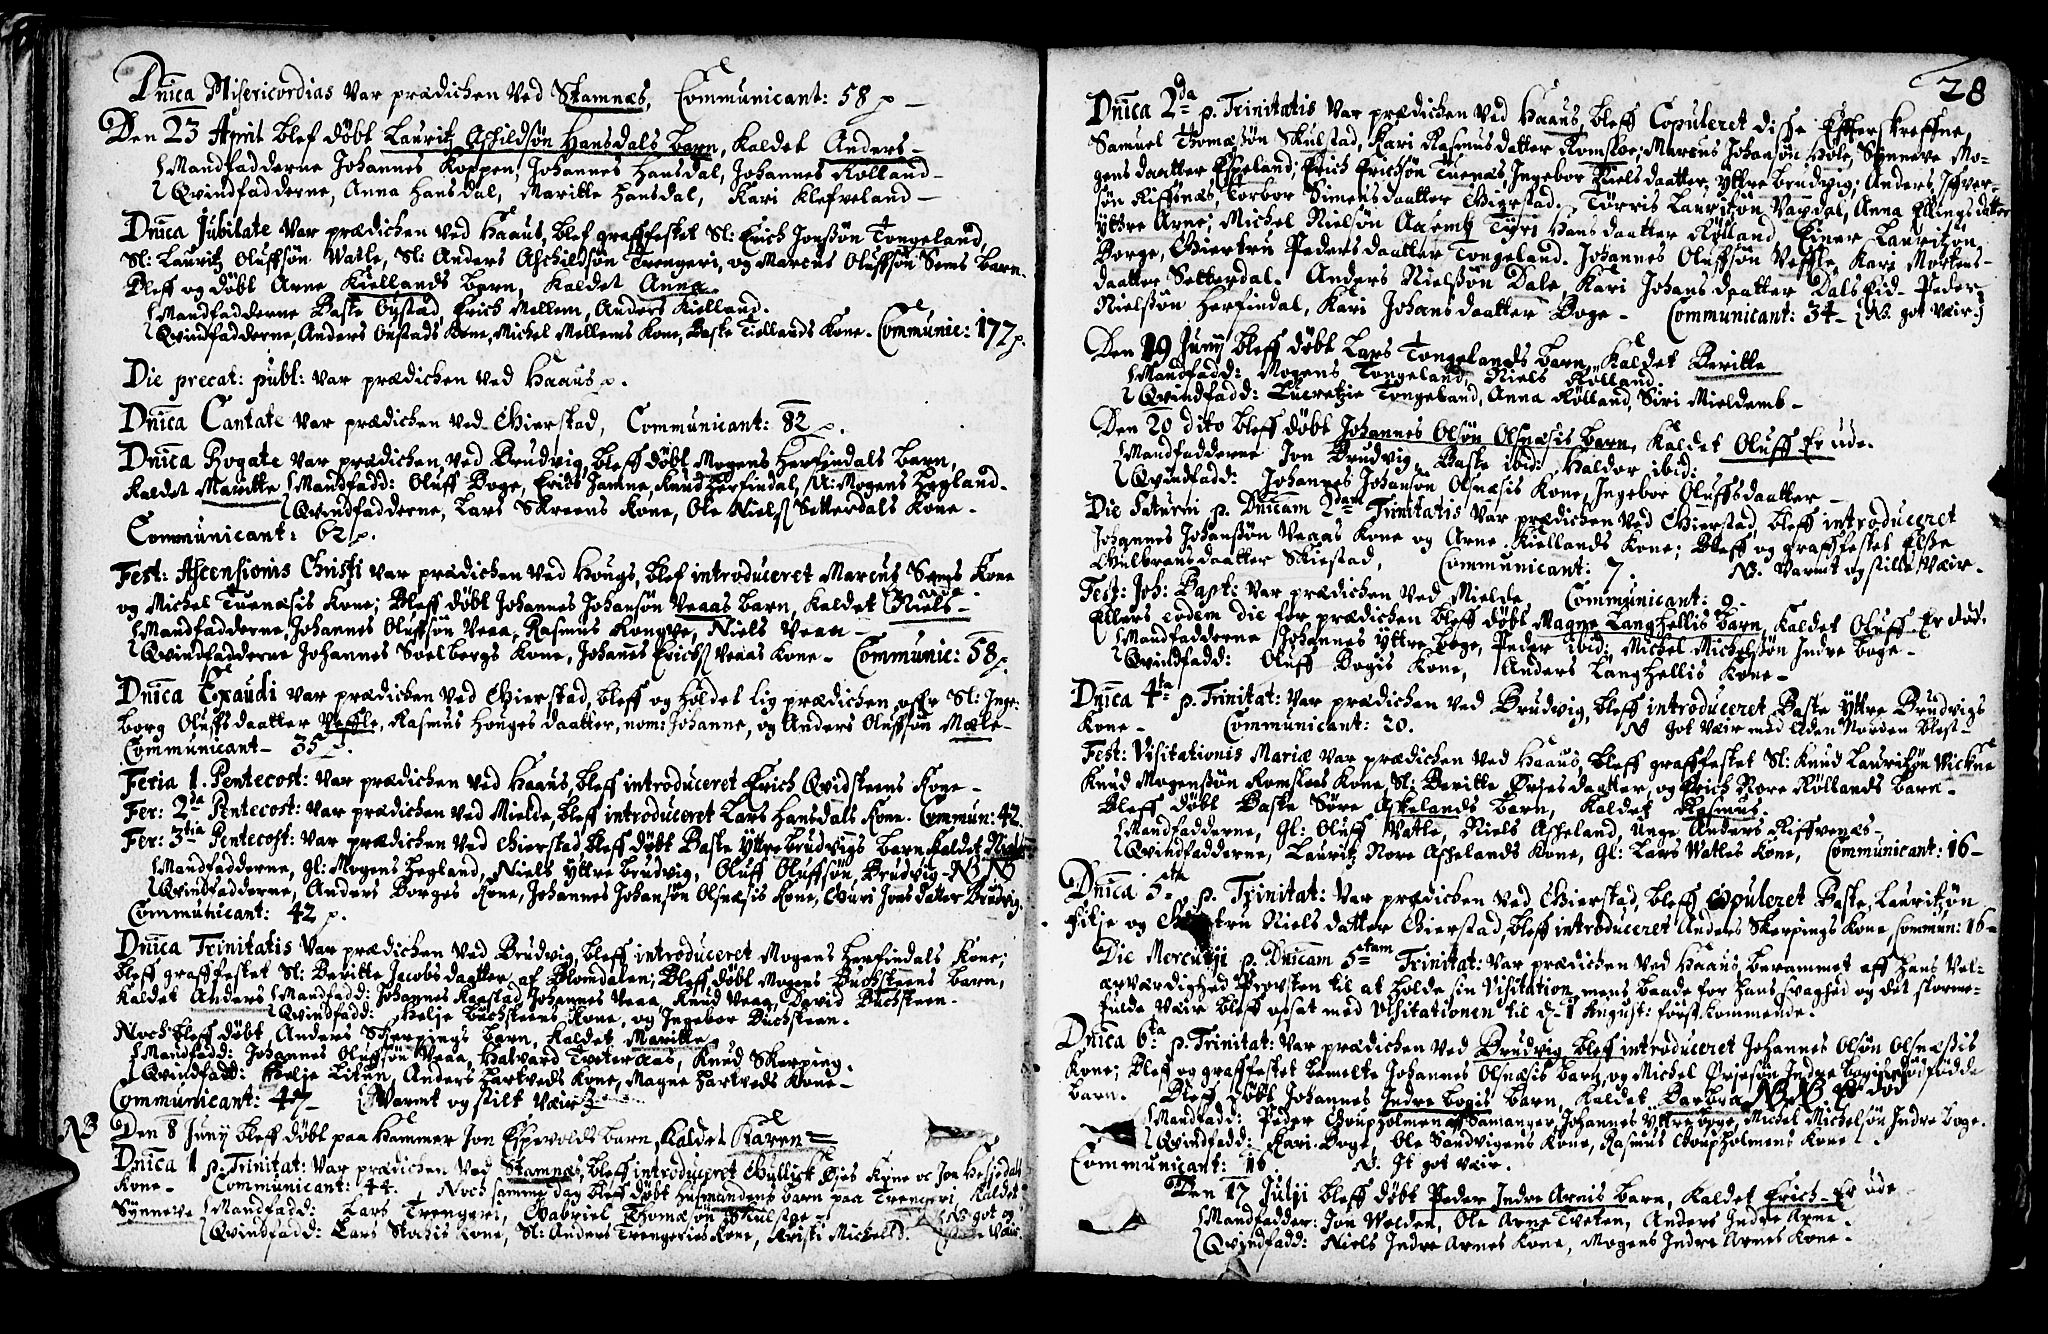 Dnica Misericordias var prædichen ved Stamnæs, Communicant: 58 p.
Den 23 April blef döbt Lauritz Aschildsön Hansdals barn, kaldet Anders
Mandfadderne Johannes Koppen, Johannes Hansdal, Johannes Rölland
Qvindfadderne, Anna Hansdal, Maritte Hansdal, Kari Klefveland
Dnica Jubilate var prædichen ved Haaus, blef graffestet Sl: Erich Jonssön Tongeland,
Sl: Lauritz Oluffsön Watle, Sl: Anders Aschildsön Trengeri, og Marcus Oluffsön Sems barn.
Bleff og döbt Arne Kiellands barn, kaldet Anna
Mandfadderne Baste Eustad, Erich Mellem, Anders Kielland.
Qvindfadderne, Anders Eustads Kone, Michel Mellems Kone, Baste Kiellands Kone. Communic: 177 p.
Die precat: publ: var prædichen ved Haaus p.
Dnica Cantate var prædichen ved Gierstad, Communicant: 82 p.
Dnica Rogate var prædichen ved Brudvig, bleff döbt Mogens Herfindals barn,
kaldet Maritte Mandfadd: Oluff Boge, Erich Jamne, Knud Herfindal, Mogens Hegland.
Qvindfadderne, Lars Skreens Kone, Ole Niels Setterdals Kone.
Communicant: 62 p.
Fest: Ascensionis Christi var prædichen ved Hougs, blef introduceret Marcus Sems Kone
og Michel Tuenæsis Kone; Bleff döbt Johannes Johansön Veaas barn, kaldet Niels
Mandfadderne, Johannes Oluffsön Veaa, Rasmus Kongve, Niels Veaa
Qvindfadderne Johannes Soelbergs Kone, Johannes Erichs Veaas Kone. Communic: 58 p.
Dnica Exaudi var prædichen ved Gierstad, bleff og holdet lig prædichen offr Sl: Inge-
borg Oluffsdaatter Veffle, Rasmus Houges daatter, nom: Johanne, og Anders Oluffsön Mæle
Communicant 35 p.
Feria 1. Pentecost: var prædichen ved Haaus, bleff introduceret Erich Qvidsteens Kone
Fer: 2da Pentecost: var prædichen ved Mielde, bleff introduceret Lars Hansdals Kone. Commun: 42.
Fer: 3tia Pentecost: var prædichen ved Gierstad, Bleff döbt Baste Yttre brudvigs barn kaldet
Mandfadderne, Gl: Mogens Hegland, Niels Yttre brudvig, Oluff Oluffsön Brudvig NB NB
Qvindfadderne, Anders Borges Kone, Johannes Johansön Olsnæsis Kone, Guri Jonsdatter Brudvig.
Communicant: 42 p.
Dnica Trinitatis var prædichen ved Brudvig, bleff introduceret Mogens Herfindals Kone;
bleff graffestet Sl: Beritte Jacobs daatter af Blomdalen; Bleff döbt Mogens Buchsteens barn,
kaldet Anders Mandfadd: Johannes Raastad, Johannes Veaa, Knud Veaa, David Buchsteen.
Qvindfadd: Helje Buchsteens Kone, og Ingebor Buchsteen.
Noch bleff döbt, Anders Skerpings barn, kaldet Maritte
Mandfadd: Johannes Oluffsön Veaa, Halvard Tveteraas, Knud Skerping.
Qvindfadd: Helje Litun, Anders Hartveds Kone, Magne Hartveds Kone
Communicant: 47 Varmt og stilt Væir
NB Den 8 Junij bleff döbt paa Hammer Jon Espevolds barn, kaldet Karen
Dnica 1 p. Trinitat: var prædichen ved Stamnæs, bleff introduceret Gullich Öjes Kone oc Jon Hesjedals
Kone. Communicant: 44. Noch samme dag bleff döbt Husmandens barn paa Trengeri, kaldet
Synneve Mandfadd: Lars Trengeri, Gabriel Thomæsön Skulstoe
Qvindfadd: Lars Stochis Kone, Sl: Anders Trengeries Kone, Kristi Michelsd. NB got og Væir
28
Dnica 2da p. Trinitatis var prædichen ved Haaus, bleff Copuleret disse Effterskreffne,
Samuel Thomæssön Skulstad, Kari Rasmusdaatter Romsloe; Marcus Johansön Hole, Synneve Mo-
gens daatter Espeland; Erich Erichsön Tuenæs, Ingebor Niels daatter, Yttre brudvig; Anders Ifver-
sön Riffsnæs, Torbor Simensdaatter Gierstad. Törris Lauritzön Vaxdal, Anna Ellings datter
Yttre Arne; Michel Nielsön Aasemb Tyri Hansdaatter Rölland Einer Lauritzön
Borge, Giertru Pedersdaatter Tongeland. Johannes Oluffsön Veffle, Kari Mortens-
daatter Setterdal. Anders Nielssön Dale, Kari Johansdaatter Dalseid. Peder
Nielssön Herfindal, Kari Johansdaatter Boge. Communicant: 34 NB. got Væir
Den 19 Junij bleff döbt Lars Tongelands barn, kaldet Beritte
Mandfadd: Mogens Tongeland, Niels Rölland.
Qvindfadd: Lucretzie Tongeland, Anna Rölland, Siri Mieldemb
Den 20 dito bleff döbt Johannes Olsön Olsnæsis barn, kaldet Oluff Er ude.
Mandfadderne Jon Brudvig, Baste ibid: Haldor ibid:
Qvindfadd: Johannes Johansön Olsnæsis Kone, Ingebor Oluffsdaatter
Die Saturni p. Dnicam 2dam Trinitatis var prædichen ved Gierstad, bleff introduceret
Johannes Johanssön Veaas Kone og Arne Kiellands Kone; Bleff og graffestet Else
Gulbransdaatter Skiestad, Communicant: 7. NB. Varmt og stille Væir.
Fest: Joh: Bapt: var prædichen ved Mielde Communicant: 9
Ellers eodem die for prædichen bleff döbt Magne Langhellis barn, kaldet Oluff. Er död.
Mandfadderne Johannes Yttre boge, Peder ibid: Michel Michelssön Indre boge
Qvindfadd: Oluff Bogis Kone, Anders Langhellis Kone
Dnica 4ta p. Trinitat: var prædichen ved Brudvig, bleff introduceret Baste Yttre Brudvigs
Kone Communicant: 20. N got Væir med liden Norden blest
Fest: Visitationis Mariæ var prædichen ved Haaus, bleff graffestet Sl: Knud Lauritzön Vickne
Knud Mogenssön Romsloes Kone, Sl: Beritte Örjesdaatter, og Erich Nore Röllands barn.
Bleff döbt Baste Söre Askelands barn, kaldet Rasmus
Mandfadderne, Gl: Oluff Vatle, Niels Ascheland, Unge Anders Riffvenæs
Qvindfadderne, Lauritz Nore Aschelands Kone, Gl: Lars Watles Kone, Communicant: 16
Dnica 5ta p. Trinitat: var prædichen ved Gierstad, bleff Copuleret Baste Lauritzön
filse og Giertru Nielsdatter Gierstad, bleff introduceret Anders Skerpings Kone, Commun: 16
Die Mercurij p. Dnicam 5tam Trinitat: var prædichen ved Haaus, berammet aff hans Vel-
ærværdighed Provsten til at holde sin Visitation, mens baade for hans svaghed og det storme-
fulde Væir bleff opsat med Visitationen til d. 1 August: först kommende.
Dnica 6ta p. Trinitat: var prædichen ved Brudvig, bleff introduceret Johannes Olsön Olsnæssis
Kone; bleff og graffestet bemelte Johannes Olsnæsis barn, og Michel Örjesön Indre Bogis dödfödde
barn. Bleff döbt Johannes Indre bogis barn, kaldet Barbra NB NB Er död
Mandfadd: Peder Goupholmen af Samanger, Johannes Yttre boge, Michel Michelsön Indre boge.
Qvindfadd: Kari Boge, Ole Sandvigens Kone, Rasmus Goupholmens Kone
Communicant: 16 N. It got Væir.
Den 17 Julij bleff döbt Peder Indre Arnis barn, kaldet Erich. Er ude
Mandfadder: Jon Welden, Ole Arne Tveten, Anders Indre Arne.
Qvindfadd: Niels Indre Arnes Kone, Mogens Indre Arnes Kone.